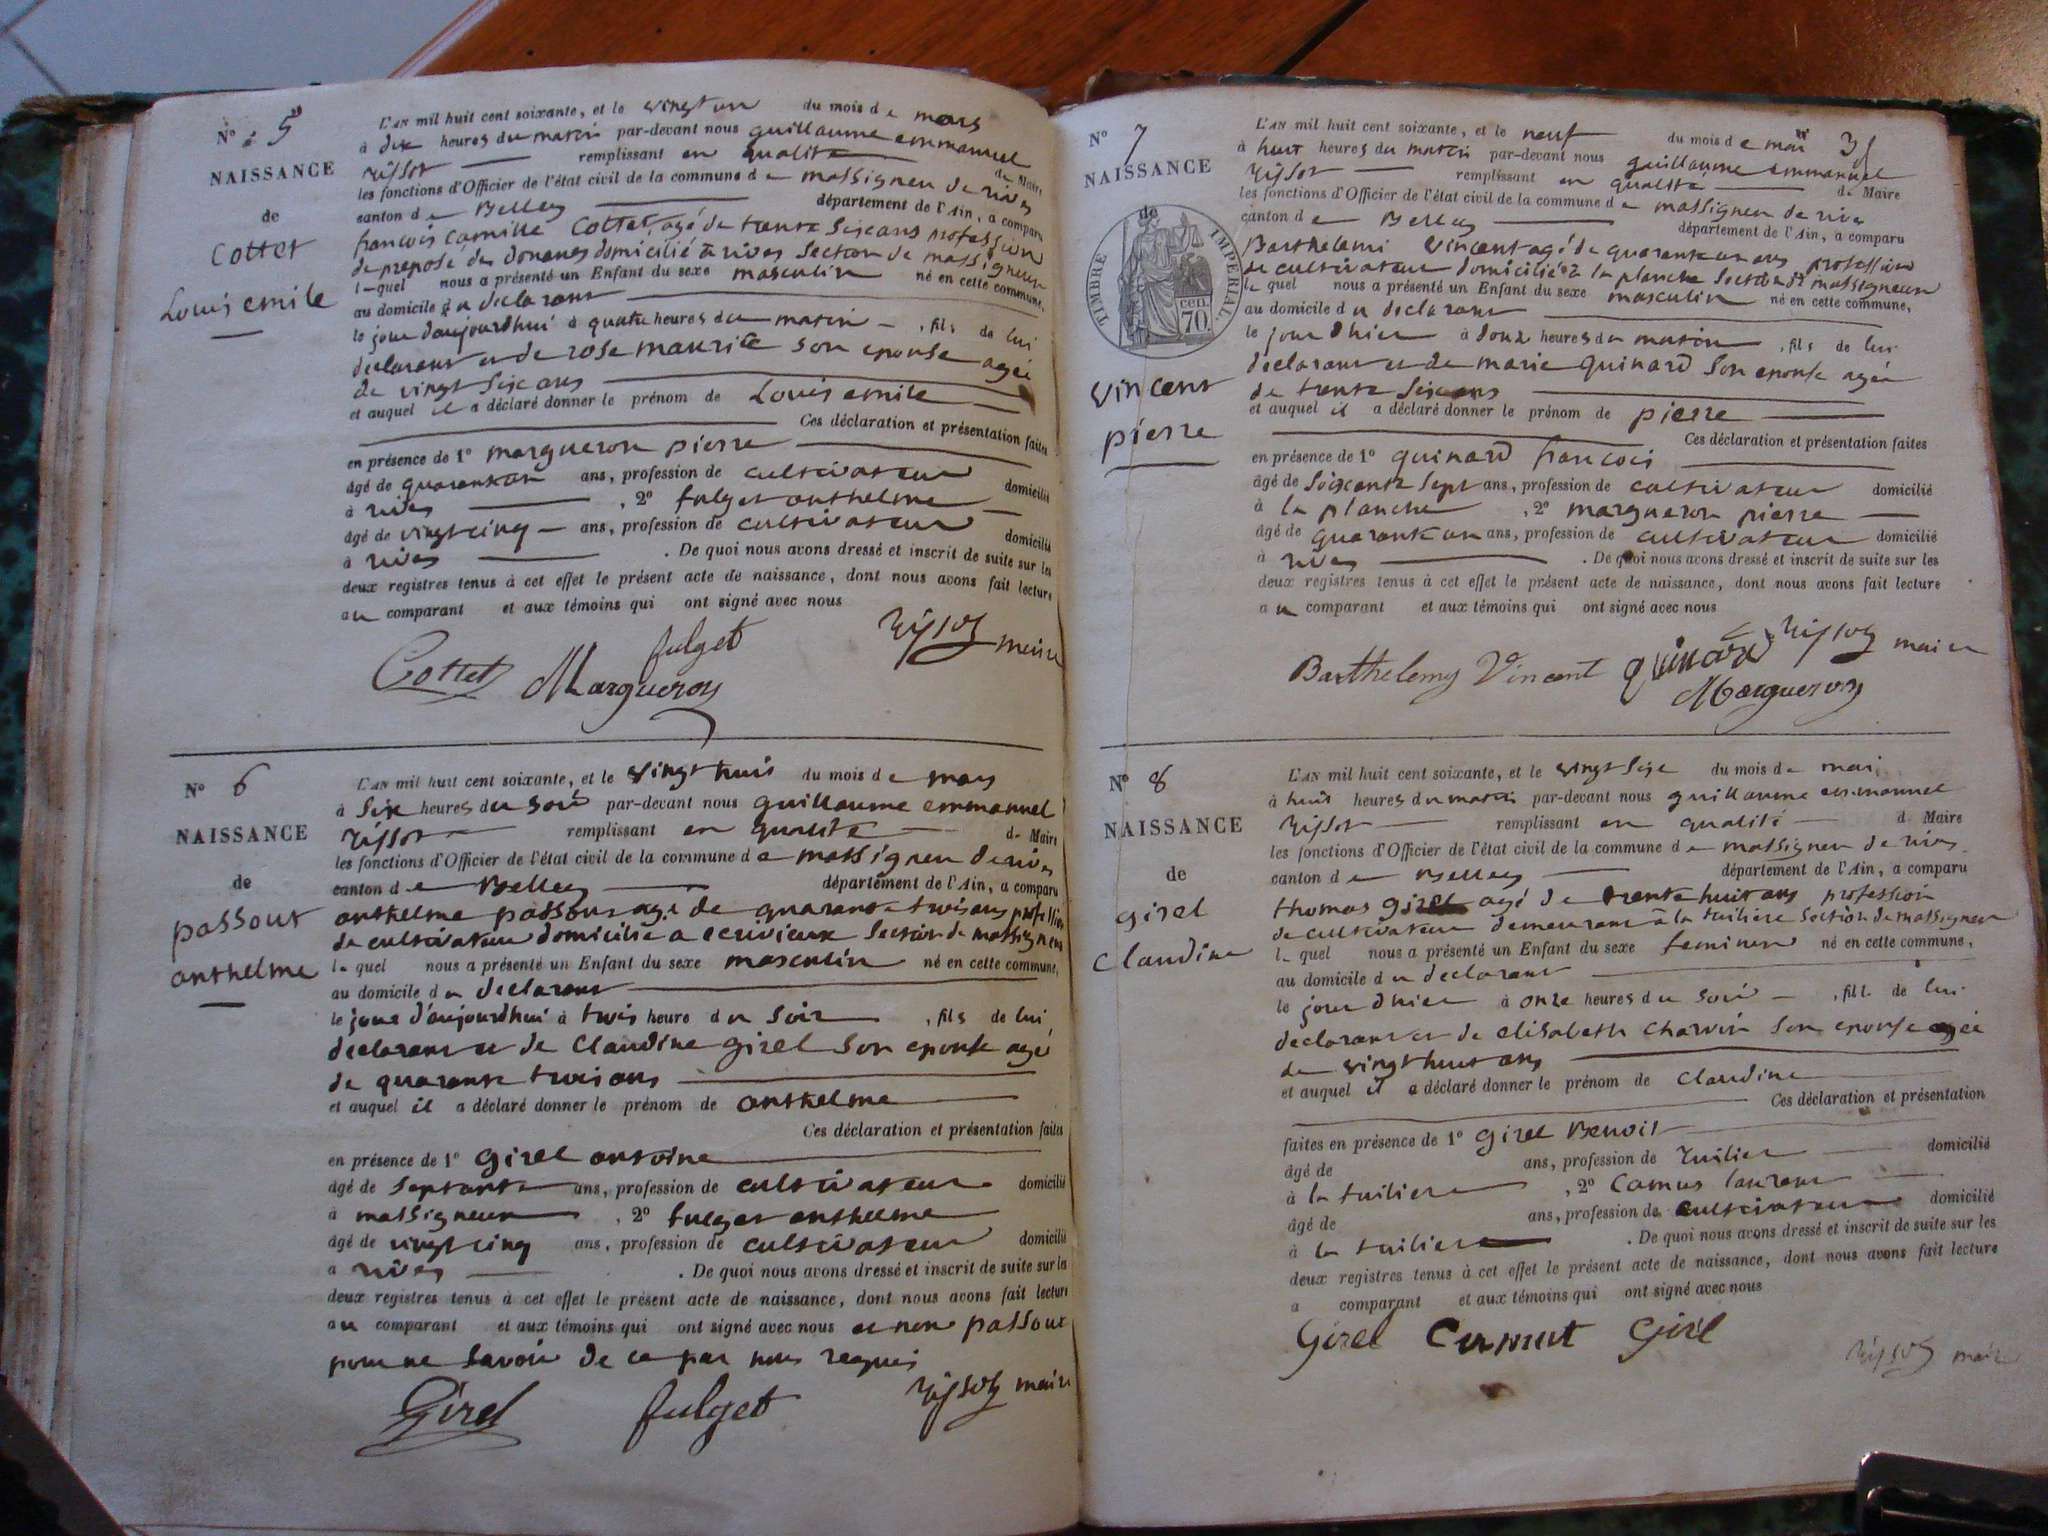 N° 5
NAISSANCE
de
Cottet
Louis emile
L'AN mil huit cent soixante, et le vingt un du mois de mars
à dix heures du matin par-devant nous guillaume emmanuel
remplissant en qualité de Maire
les fonctions d'Officier de l'état civil de la commune de massigneu de rives
canton de Belley département de l'Ain, a comparu
françois camille Cottet, agé de trente six ans profession
de preposé des douanes domicilié à rives section de massigneu
lequel nous a présenté un Enfant du sexe masculin né en cette commune,
au domicile du declarant
le jour d'aujourdhui à quatre heures du matin, fils de lui
declarant et de rose maurice son epouse agée
de vingt six ans
et auquel il a déclaré donner le prénom de Louis emile
Ces déclaration et présentation faites
en présence de 1° margueron pierre
âgé de quarante un ans, profession de cultivateur domicilié
à rives, 2° fulget anthelme
âgé de vingt cinq ans, profession de cultivateur domicilié
à rives. De quoi nous avons dressé et inscrit de suite sur les
deux registres tenus à cet effet le présent acte de naissance, dont nous avons fait lecture
au comparant et aux témoins qui ont signé avec nous
Cottet Margueron fulget maire
N° 6
NAISSANCE
de
passout
anthelme
L'AN mil huit cent soixante, et le vingt huit du mois de mars
à six heures du soir par-devant nous guillaume emmanuel
remplissant en qualité de Maire
les fonctions d'Officier de l'état civil de la commune de massigneu de rives
canton de Belley département de l'Ain, a comparu
anthelme passout agé de quarante trois ans profession
de cultivateur domicilié a ecuvieux section de massigneu
lequel nous a présenté un Enfant du sexe masculin né en cette commune,
au domicile du declarant
le jour d'aujourdhui à trois heure du soir, fils de lui
declarant et de Claudine girel son epouse agé
de quarante trois ans
et auquel il a déclaré donner le prénom de anthelme
Ces déclaration et présentation faites
en présence de 1° girel antoine
âgé de septante ans, profession de cultivateur domicilié
à massigneu, 2° fulget anthelme
âgé de vingt cinq ans, profession de cultivateur domicilié
a rives. De quoi nous avons dressé et inscrit de suite sur les
deux registres tenus à cet effet le présent acte de naissance, dont nous avons fait lecture
au comparant et aux témoins qui ont signé avec nous et non passout
pour ne savoir de ce par nous requis
Girel fulget maire
N° 7
NAISSANCE
de
TIMBRE IMPERIAL
70 cen.
vincent
pierre
L'AN mil huit cent soixante, et le neuf du mois de mai
à huit heures du matin par-devant nous guillaume emmanuel
remplissant en qualité de Maire
les fonctions d'Officier de l'état civil de la commune de massigneu de rives
canton de Belley département de l'Ain, a comparu
Barthelemi vincent agé de quarante un ans profession
de cultivateur domicilié à la planche section de massigneu
lequel nous a présenté un Enfant du sexe masculin né en cette commune,
au domicile du declarant
le jour dhier à douze heures du matin, fils de lui
declarant et de marie quinard son epouse agée
de trente six ans
et auquel il a déclaré donner le prénom de pierre
Ces déclaration et présentation faites
en présence de 1° quinard francois
âgé de soixante sept ans, profession de cultivateur domicilié
à la planche, 2° margueron pierre
âgé de quarante un ans, profession de cultivateur domicilié
à rives. De quoi nous avons dressé et inscrit de suite sur les
deux registres tenus à cet effet le présent acte de naissance, dont nous avons fait lecture
au comparant et aux témoins qui ont signé avec nous
Barthelemy Vincent quinard Margueron maire
N° 8
NAISSANCE
de
girel
Claudine
L'AN mil huit cent soixante, et le vingt six du mois de mai
à huit heures du matin par-devant nous guillaume emmanuel
remplissant en qualité d Maire
les fonctions d'Officier de l'état civil de la commune de massigneu de rives
canton de Belley département de l'Ain, a comparu
thomas girel agé de trente huit ans profession
de cultivateur demeurant à la tuiliere section de massigneu
lequel nous a présenté un Enfant du sexe feminin né en cette commune,
au domicile du declarant
le jour dhier à onze heures du soir, fill. de lui
declarant et de elisabeth charvin son epouse agée
de vingt huit ans
et auquel il a déclaré donner le prénom de Claudine
Ces déclaration et présentation
faites en présence de 1° girel Benoit
âgé de ans, profession de tuilier domicilié
à la tuiliere, 2° Camus laurent
âgé de ans, profession de cultivateur domicilié
à la tuiliere. De quoi nous avons dressé et inscrit de suite sur les
deux registres tenus à cet effet le présent acte de naissance, dont nous avons fait lecture
a comparant et aux témoins qui ont signé avec nous
Girel Girel maire